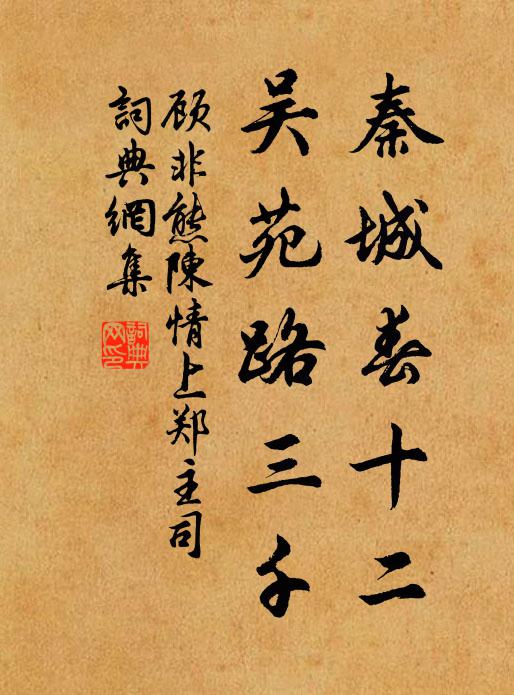 秦城春十二
吴苑路三千
顾非熊陳情上郑主司
詞典網集
詞典网印